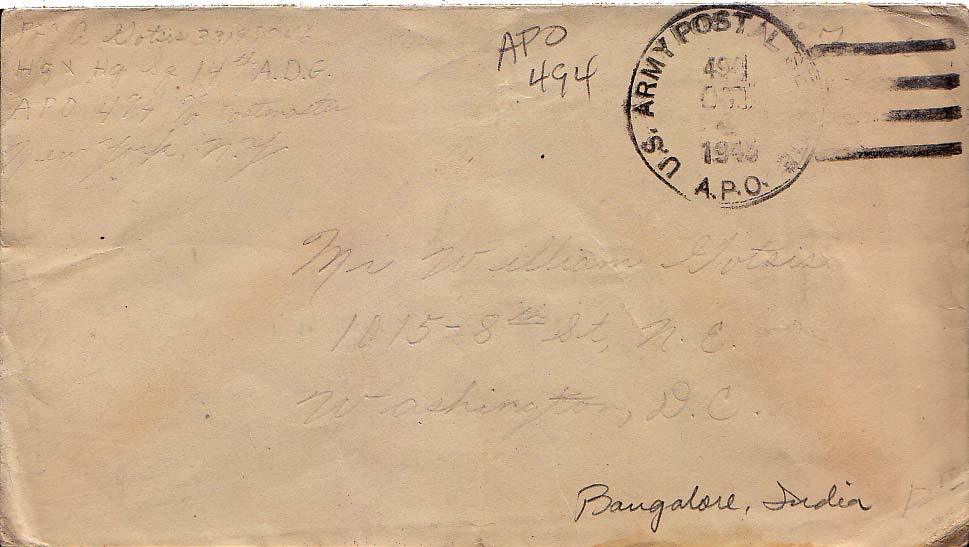 Hq & Hq Sq 14th A.D.G.
APO 494 % Postmaster
New York, N.Y.
APO
494
U.S. ARMY POSTAL
494
194
A.P.O.
Mr William Gotsis
1015-8th St, N.E.
Washington, D.C.
Bangalore, India